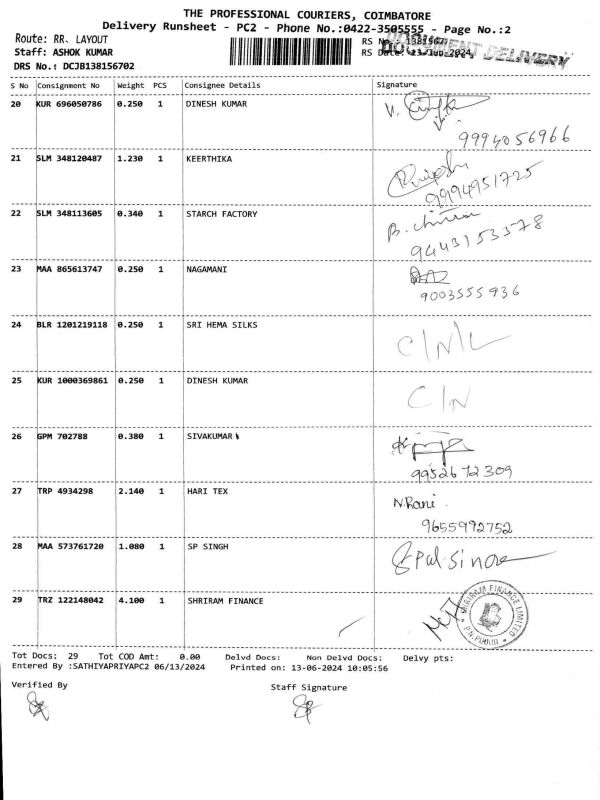 THE PROFESSIONAL COURIERS, COIMBATORE
Delivery Runsheet - PC2 - Phone No.:0422-3505555 - Page No.:2
Route: RR. LAYOUT
RS No.
Staff: ASHOK KUMAR
RS Date: 13-Jun-2024
DOCUMENT DELIVERY
DRS No.: DCJB138156702
S No Consignment No Weight PCS Consignee Details Signature
20 KUR 696050786 0.250 1 DINESH KUMAR
9994056966
21 SLM 348120487 1.230 1 KEERTHIKA
9994951725
22 SLM 348113605 0.340 1 STARCH FACTORY
9443153578
23 MAA 865613747 0.250 1 NAGAMANI
9003555936
24 BLR 1201219118 0.250 1 SRI HEMA SILKS
C/N/L
25 KUR 1000369861 0.250 1 DINESH KUMAR
C/N
26 GPM 702788 0.380 1 SIVAKUMAR
9952672309
27 TRP 4934298 2.140 1 HARI TEX N.Rani
9655992752
28 MAA 573761720 1.080 1 SP SINGH
29 TRZ 122148042 4.100 1 SHRIRAM FINANCE
SHRIRAM FINANCE LIMITED
P.N.PUDUR
Tot Docs: 29 Tot COD Amt: 0.00 Delvd Docs: Non Delvd Docs: Delvy pts:
Entered By :SATHIYAPRIYAPC2 06/13/2024 Printed on: 13-06-2024 10:05:56
Verified By Staff Signature